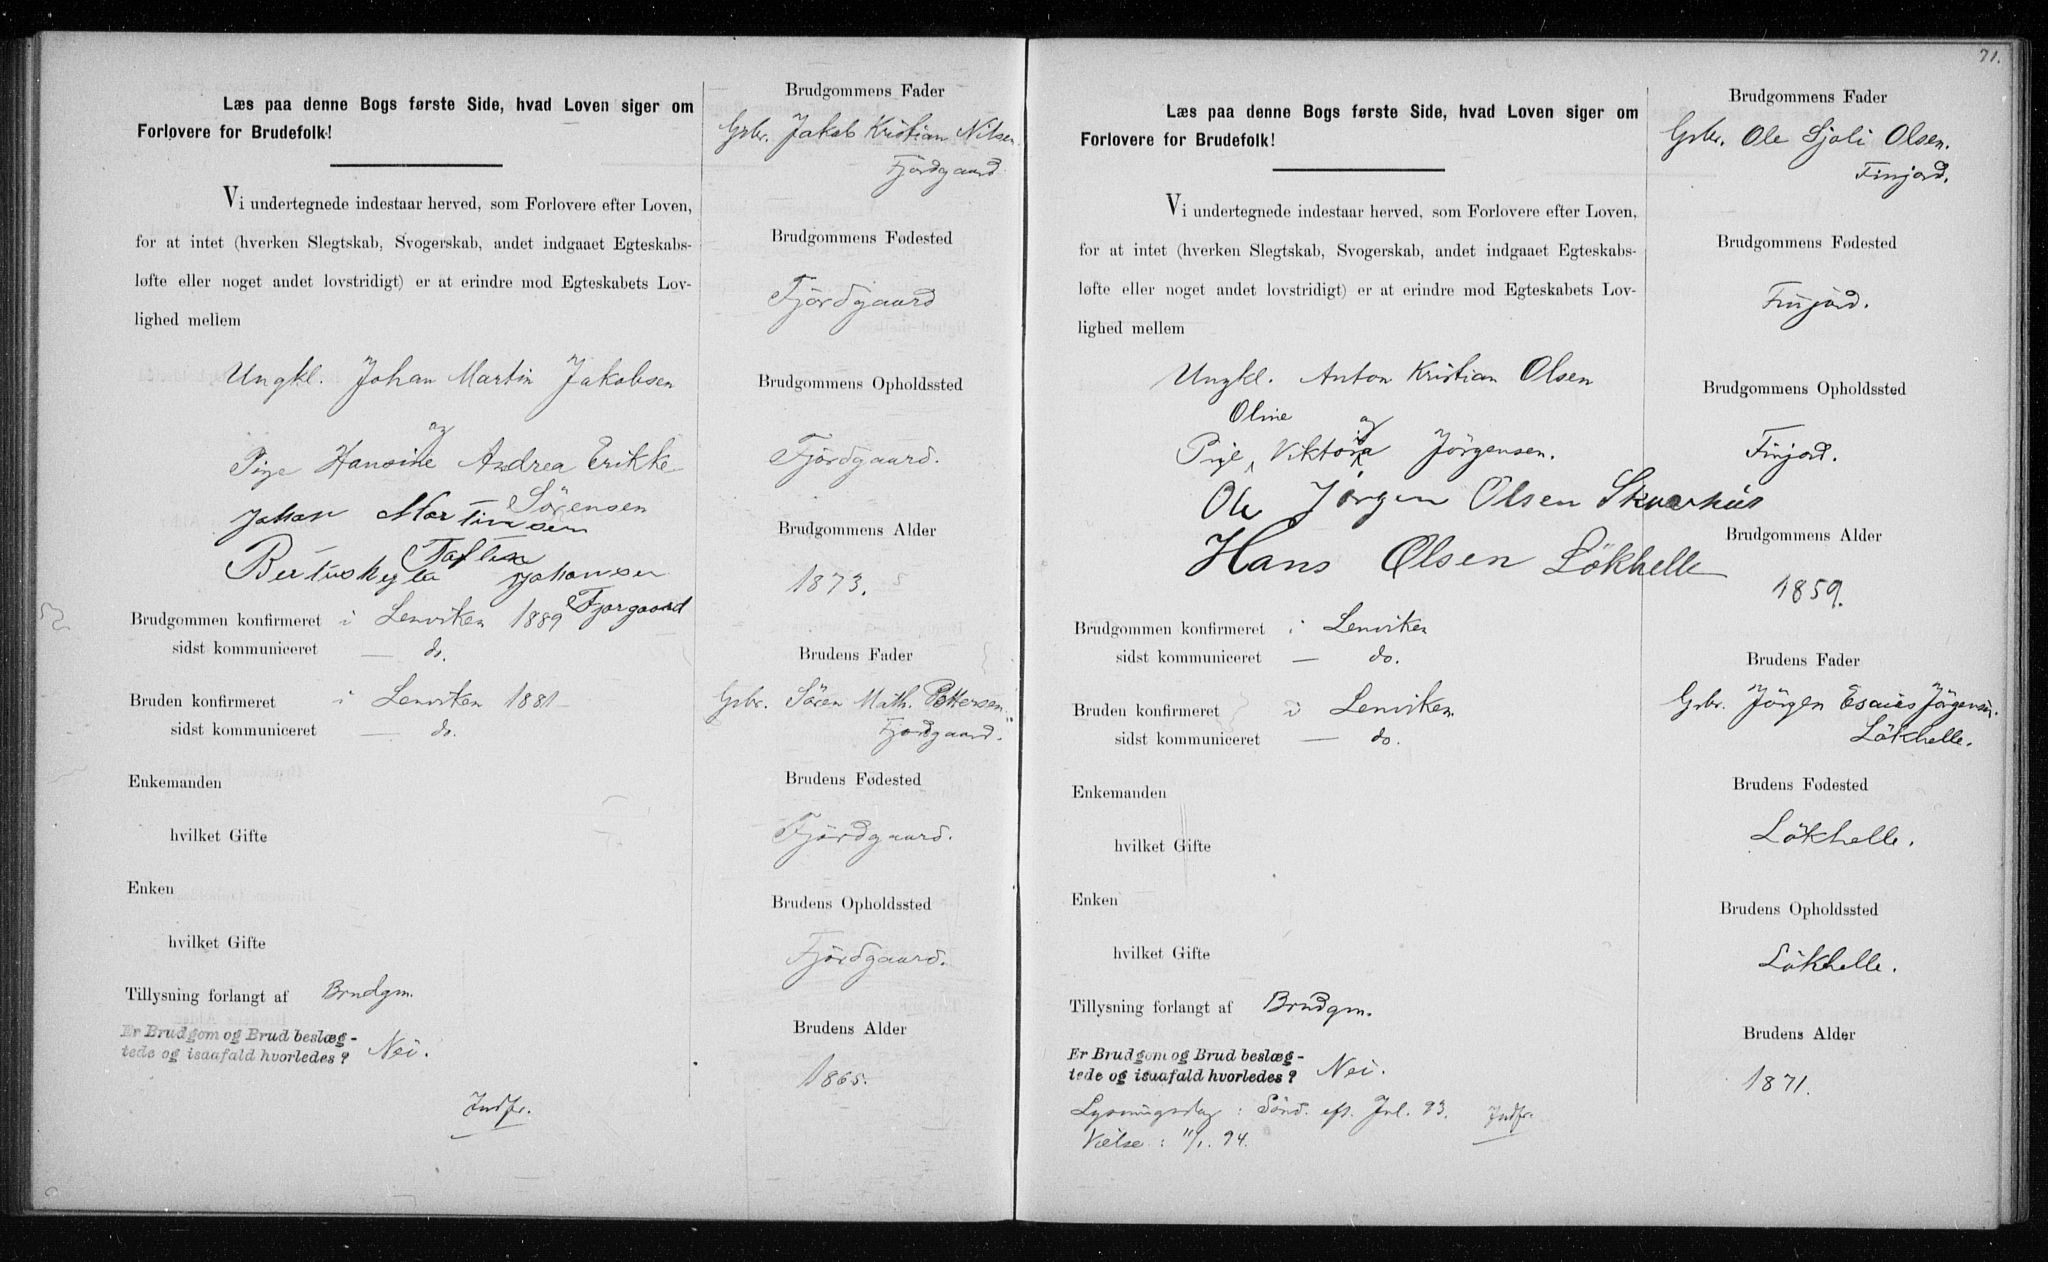 Læs paa denne Bogs første Side, hvad Loven siger om
Forlovere for Brudefolk!
Vi undertegnede indestaar herved, som Forlovere efter Loven,
for at intet (hverken Slegtskab, Svogerskab, andet indgaaet Egteskabs-
løfte eller noget andet lovstridigt) er at erindre mod Egteskabets Lov-
lighed mellem
Ungkl. Johan Martin Jakobsen
og
Pige Hansine Andrea Erikke
Sörensen
Johan Martinusen
Taften
Johansen
Fjorgaard
Brudgommen konfirmeret i Lenviken 1889
sidst kommuniceret — do.
Bruden konfirmeret i Lenviken 1881
sidst kommuniceret — do.
Enkemanden
hvilket Gifte
Enken
hvilket Gifte
Tillysning forlangt af Brudgm.
Er Brudgom og Brud beslæg-
tede og isaafald hvorledes? Nei.
Indfr.
Brudgommens Fader
Gbr. Jakob Kristian Nilsen
Fjordgaard
Brudgommens Fødested
Fjordgaard
Brudgommens Opholdssted
Fjordgaard.
Brudgommens Alder
1873.
Brudens Fader
Gbr. Sören Math. Pettersen
Fjordgaard.
Brudens Fødested
Fjordgaard.
Brudens Opholdssted
Fjordgaard.
Brudens Alder
1865.
71.
Læs paa denne Bogs første Side, hvad Loven siger om
Forlovere for Brudefolk!
Vi undertegnede indestaar herved, som Forlovere efter Loven,
for at intet (hverken Slegtskab, Svogerskab, andet indgaaet Egteskabs-
løfte eller noget andet lovstridigt) er at erindre mod Egteskabets Lov-
lighed mellem
Ungkl. Anton Kristian Olsen
Oline og
Pige Viktoria Jörgensen.
Ole Jörgen Olsen Skvarhus
Hans Olsen Lökhelle
Brudgommen konfirmeret i Lenviken
sidst kommuniceret — do.
Bruden konfirmeret i Lenviken
sidst kommuniceret — do.
Enkemanden
hvilket Gifte
Enken
hvilket Gifte
Tillysning forlangt af Brudgm.
Er Brudgom og Brud beslæg-
tede og isaafald hvorledes? Nei.
Lysningsdag: Sönd. eft. Jul. 93. Indfr.
Vielse: 11/1. 94.
Brudgommens Fader
Gbr. Ole Sjoli Olsen.
Finjord.
Brudgommens Fødested
Finjord.
Brudgommens Opholdssted
Finjord.
Brudgommens Alder
1859.
Brudens Fader
Gbr. Jörgen Esaias Jörgensen.
Lökhelle.
Brudens Fødested
Lökhelle.
Brudens Opholdssted
Lökhelle.
Brudens Alder
1871.